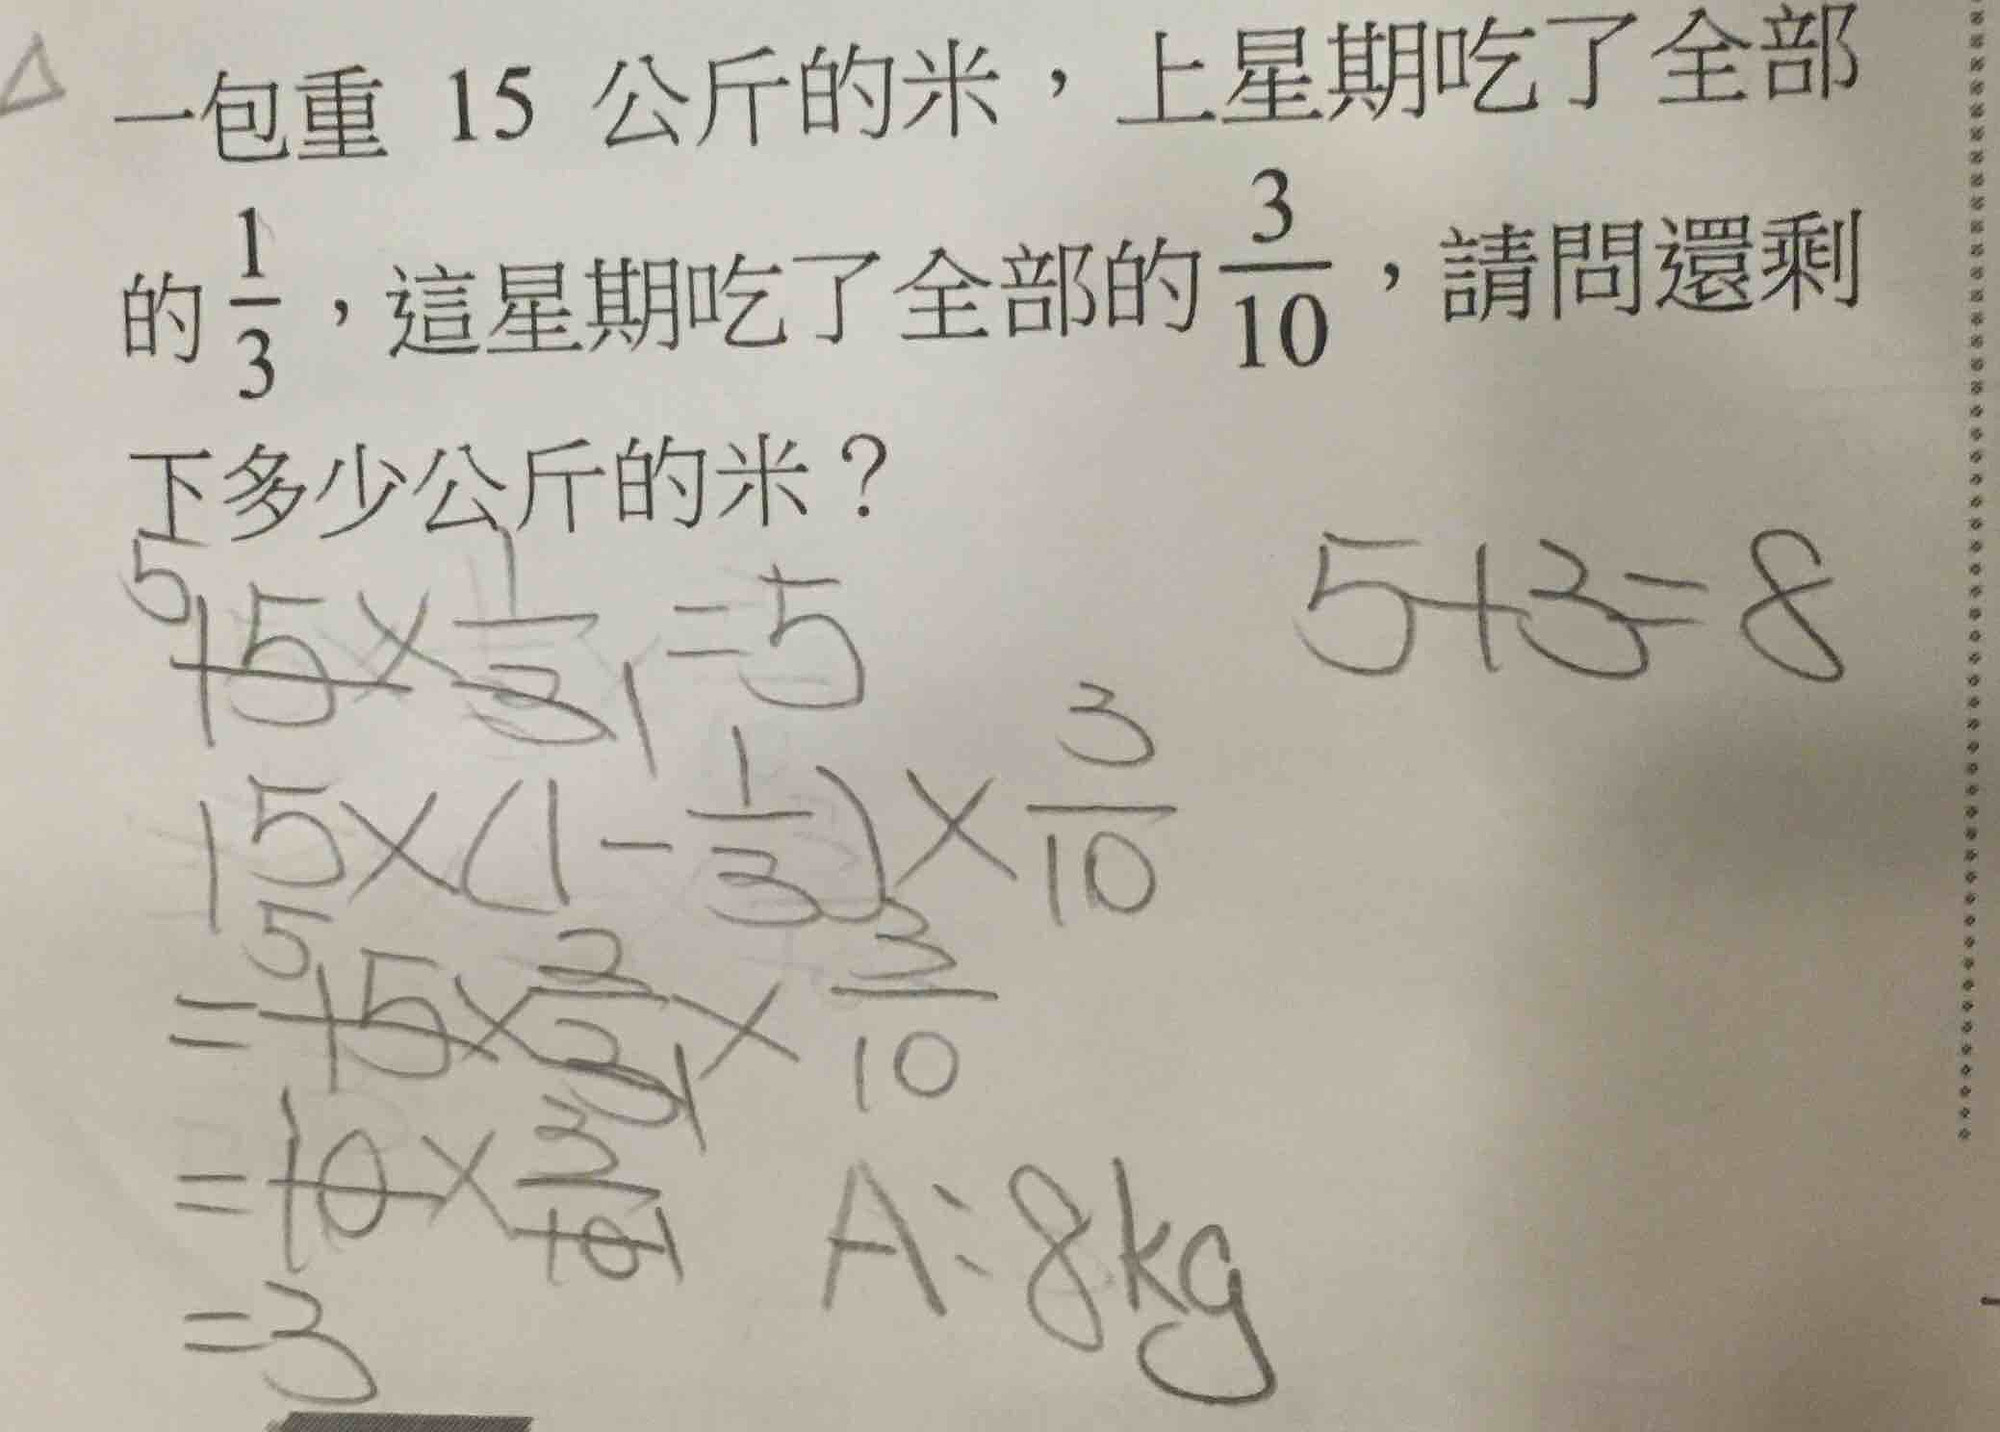 一包重 15 公斤的米，上星期吃了全部
的 1/3，這星期吃了全部的 3/10，請問還剩
下多少公斤的米？
5 15 × 1/3 1 = 5
5+3=8
15×(1-1/3)×3/10
= 5 15 × 2/3 1 × 3/10
= 10 × 3/10 1
=3
A:8kg